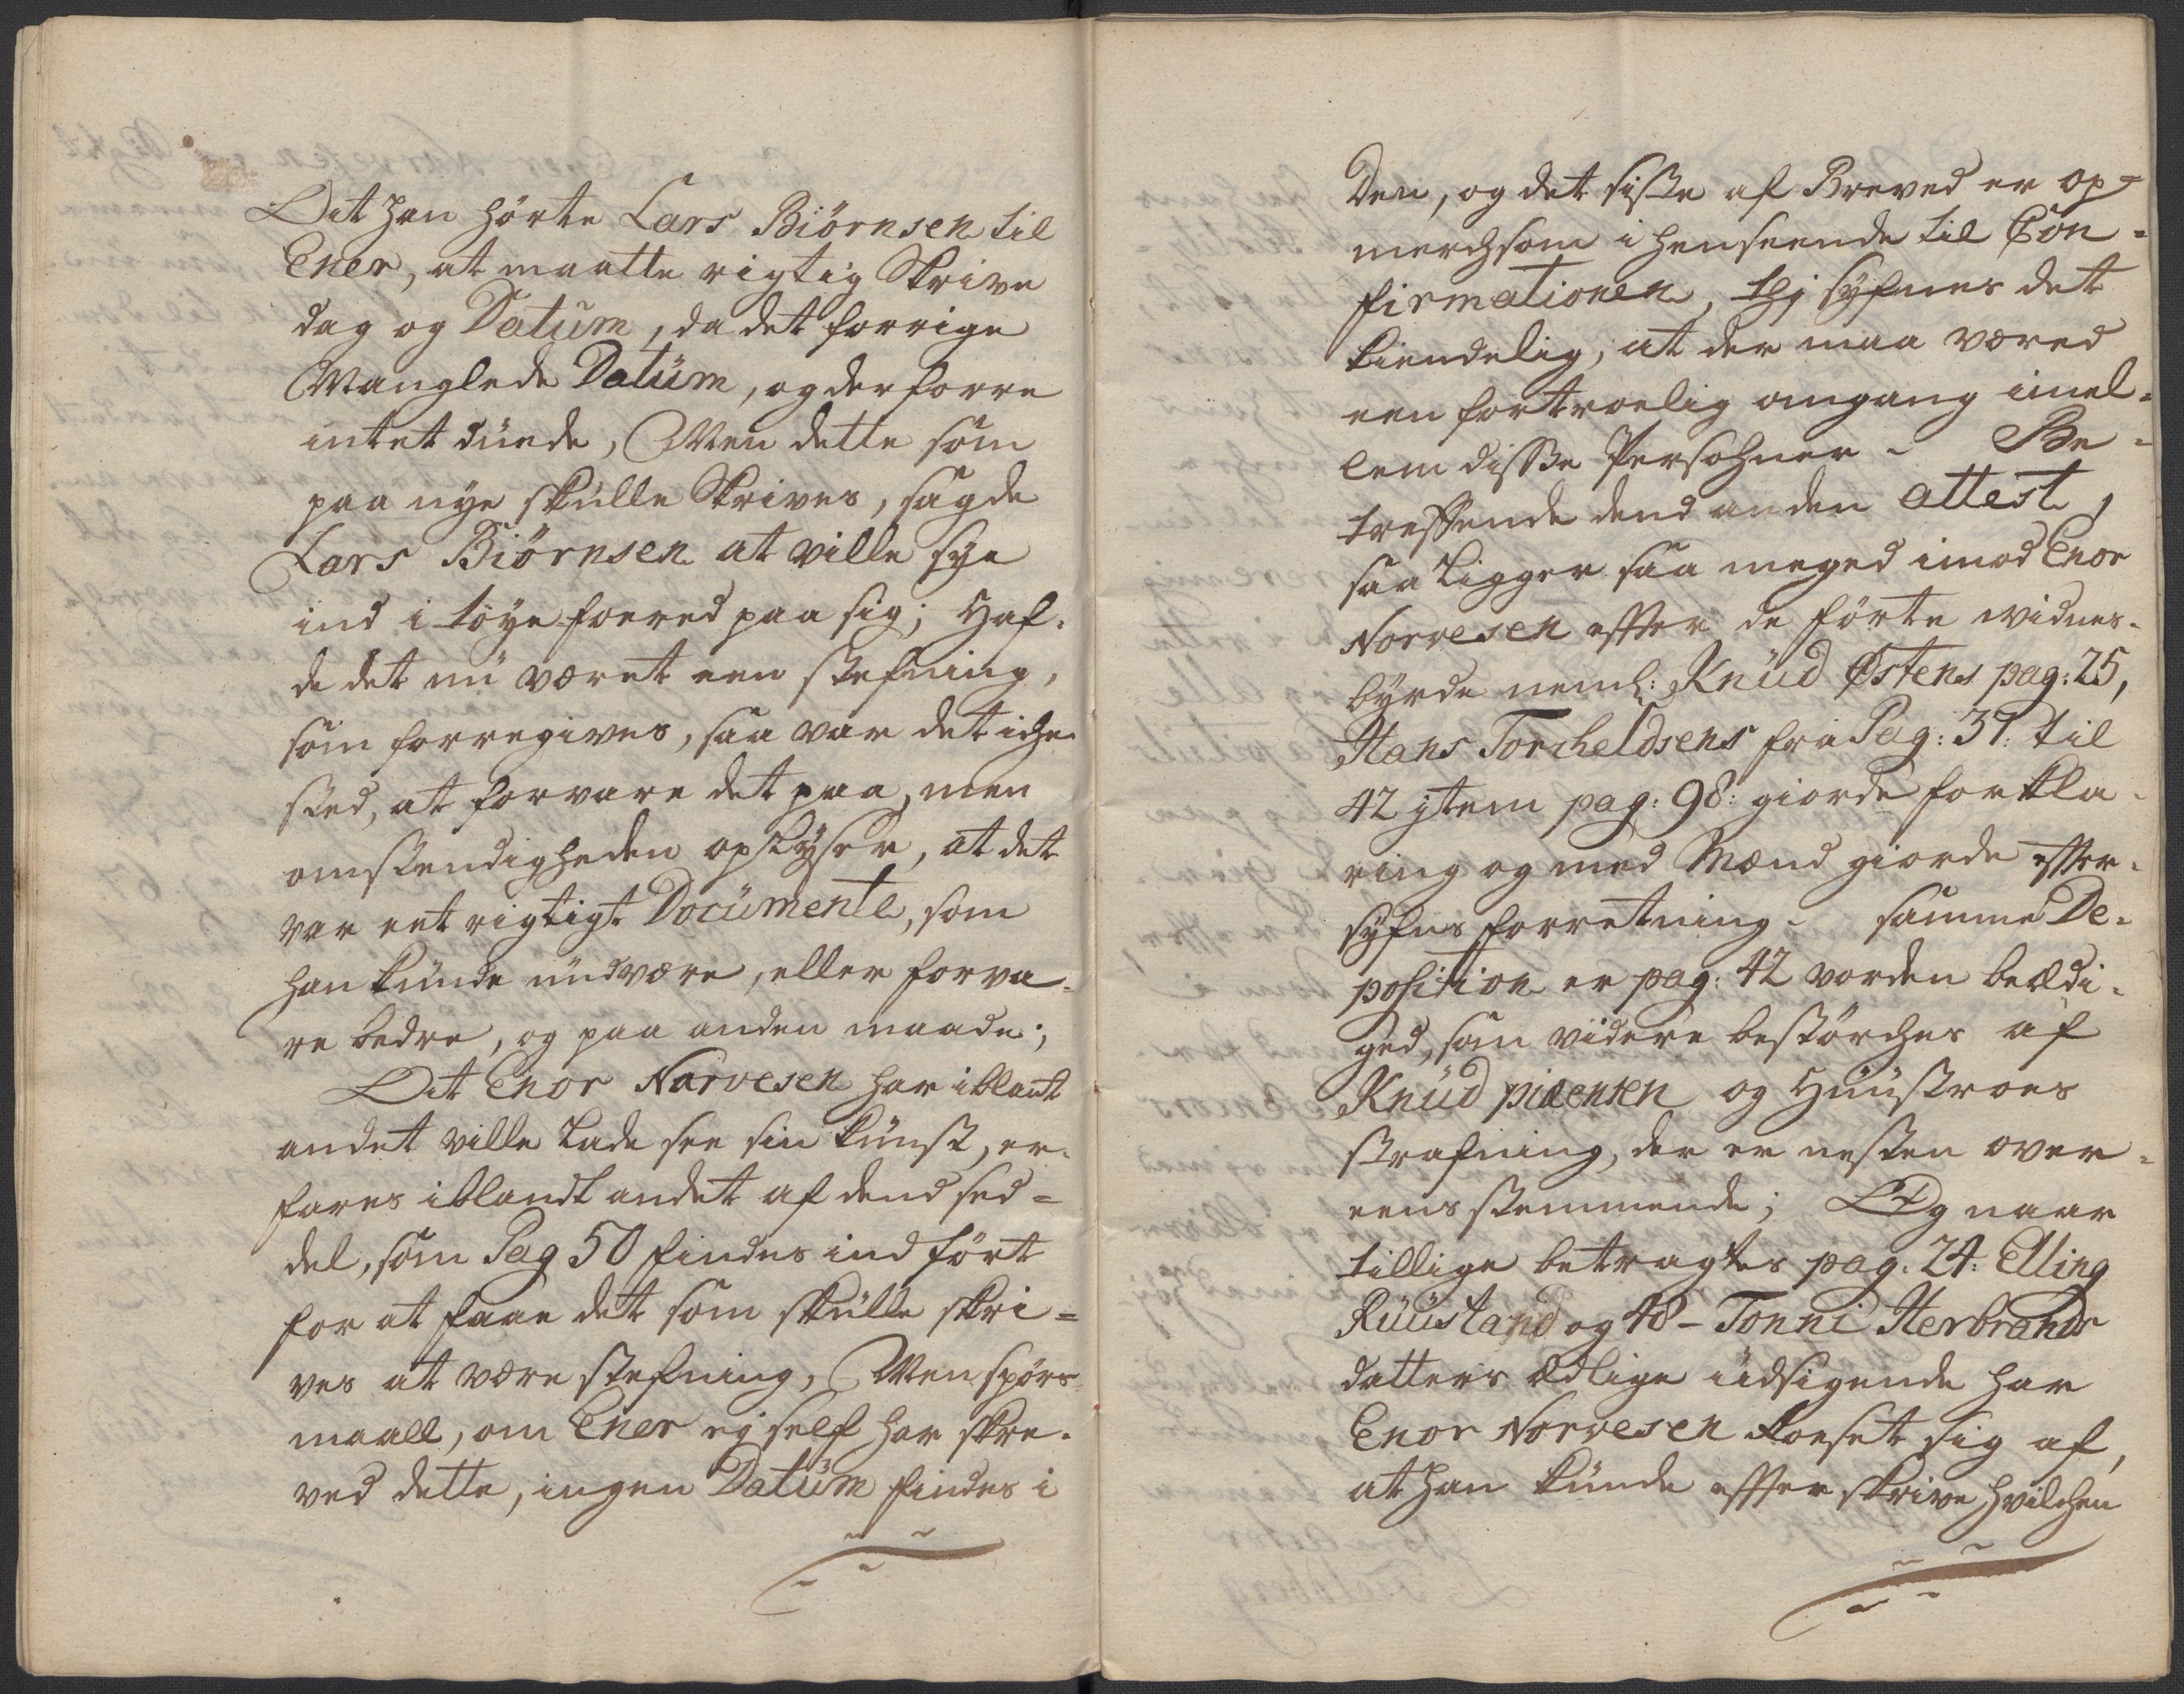 At han hørte Lars Biørnsen til
Ener, at maatte rigtig Skrive
dag og Datum, da det forrige
Manglede Datum, og derforre
intet duede, Men dette som
paa nye skulle Skrives, sagde
Lars Biørnsen at ville sye
ind i tøye foered paa sig; Haf-
de det nu været een stefning,
som forregives, saa var det iche
sted, at forvare det paa, men
omstendigheden oplyser, at det
var eet rigtigt Documente, som
han kunde undvære, eller forva-
re bedre, og paa anden maade;
At Enor Narvesen har iblant
andet ville Lade see sin kunst, er-
fares iblandt andet af dend sed=
del, som Pag 50 findes ind ført
for at faae det som skulle skri=
ves at være stefning, Men spørs-
maall, om Ener ej self har skre-
ved dette, ingen Datum findes i
Den, og det siste af Breved er op=
merchsom i henseende til Con=
firmationen, thj syfnes det
kiendelig, at der maa vœred
een fortroelig omgang imel=
lem disse Persohner - Be=
treffende dend anden attest,
saa Ligger saa meged imod Enor
Norvesen effter de førte vidnes-
byrde neml: Knud Østens pag: 25,
Hans Torcheldsens fra Pag: 31: til
42 jtem pag: 98: giorde forkla-
ring og med Mænd giorde effter-
syfns forretning - samme De-
position er pag: 42 vorden beædi-
ged, som videre bestørches af
Knud pidensen og Huustroes
strafning, der er nesten over=
eens stemmende; Og naar
tillige betragtes pag: 24: Elling
Ruustand og 48 - Tonni Herbrands
datters ædlige udsigende har
Enor Norvesen Roeset sig af,
at han kunde effter skrive hvilchen